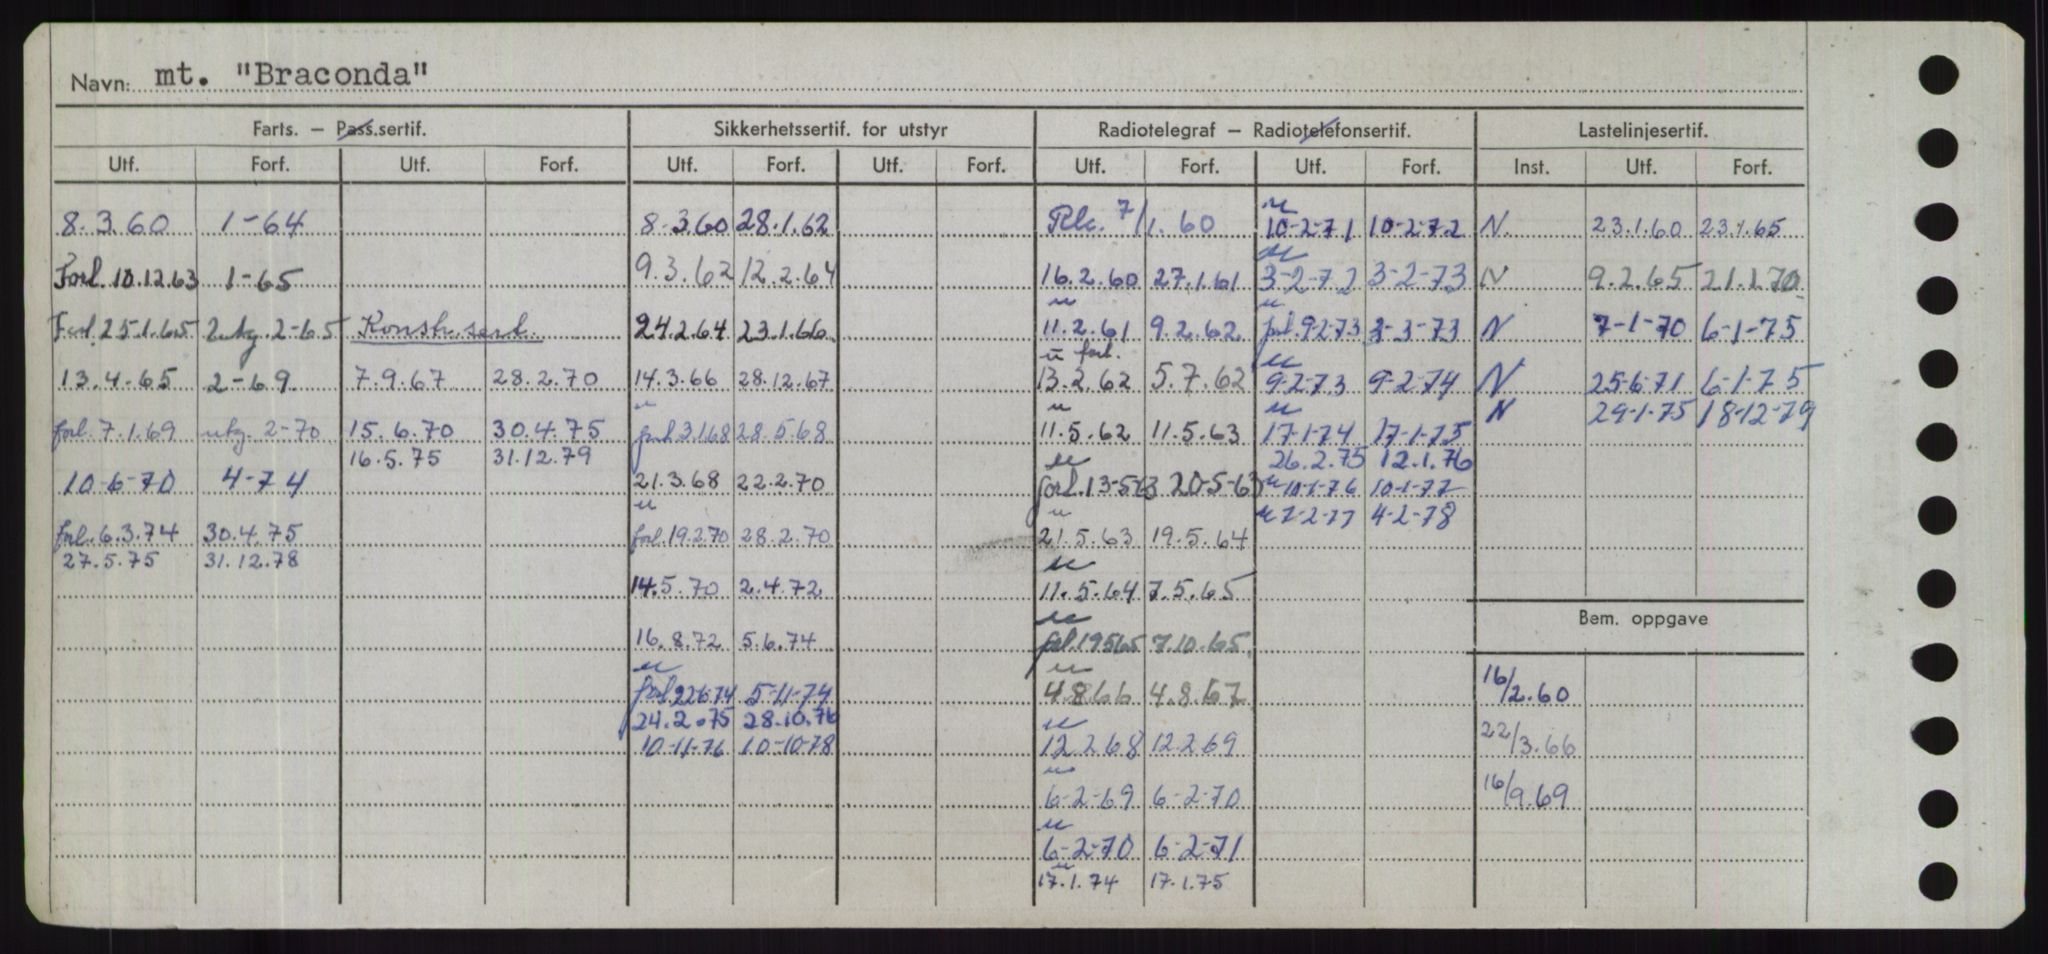 Navn: mt. "Braconda"
Farts. – Pass.sertif. Sikkerhetssertif. for utstyr Radiotelegraf – Radiotelefonsertif. Lastelinjesertif.
Utf. Forf. Utf. Forf. Utf. Forf. Utf. Forf. Utf. Forf. Utf. Forf. Inst. Utf. Forf.
8.3.60 1-64 8.3.60 28.1.62 7/1.60 10-2-71 10-2-72 N. 23.1.60 23.1.65
Forl. 10.12.63 1-65 9.3.62 12.2.64 16.2.60 27.1.61 3-2-72 3-2-73 N 9.2.65 21.1.70
Forl. 25.1.65 utg. 2-65 Konstr.sert. 24.2.64 23.1.66 11.2.61 9.2.62 forl. 9-2-73 3-3-73 N 7-1-70 6-1-75
13.4.65 2-69 7.9.67 28.2.70 14.3.66 28.12.67 forl. 13.2.62 5.7.62 9-2-73 9-2-74 N 25-6-71 6-1-75
N 29-1-75 18-12-79
forl. 7.1.69 utg. 2-70 15.6.70 30.4.75 forl. 3.1.68 28.5.68 11.5.62 11.5.63 17-1-74 17-1-75
16.5.75 31.12.79 26.2.75 12.1.76
10-6-70 4-74 21.3.68 22.2.70 forl. 13-5-63 20-5-63 10-1-76 10-1-77
7-2-77 4-2-78
forl. 6.3.74 30.4.75 forl. 19.2.70 28.2.70 21.5.63 19.5.64
27.5.75 31.12.78
14.5.70 2.4.72 11.5.64 7.5.65
Bem. oppgave
16.8.72 5.6.74 forl. 19565 7.10.65
forl. 22674 5-11-74 4.8.66 4.8.67 16/2.60
24.2.75 28.10.76
10-11-76 10-10-78 12.2.68 12.2.69 22/3.66
6-2-69 6-2-70 16/9.69
6-2-70 6-2-71
17.1.74 17.1.75